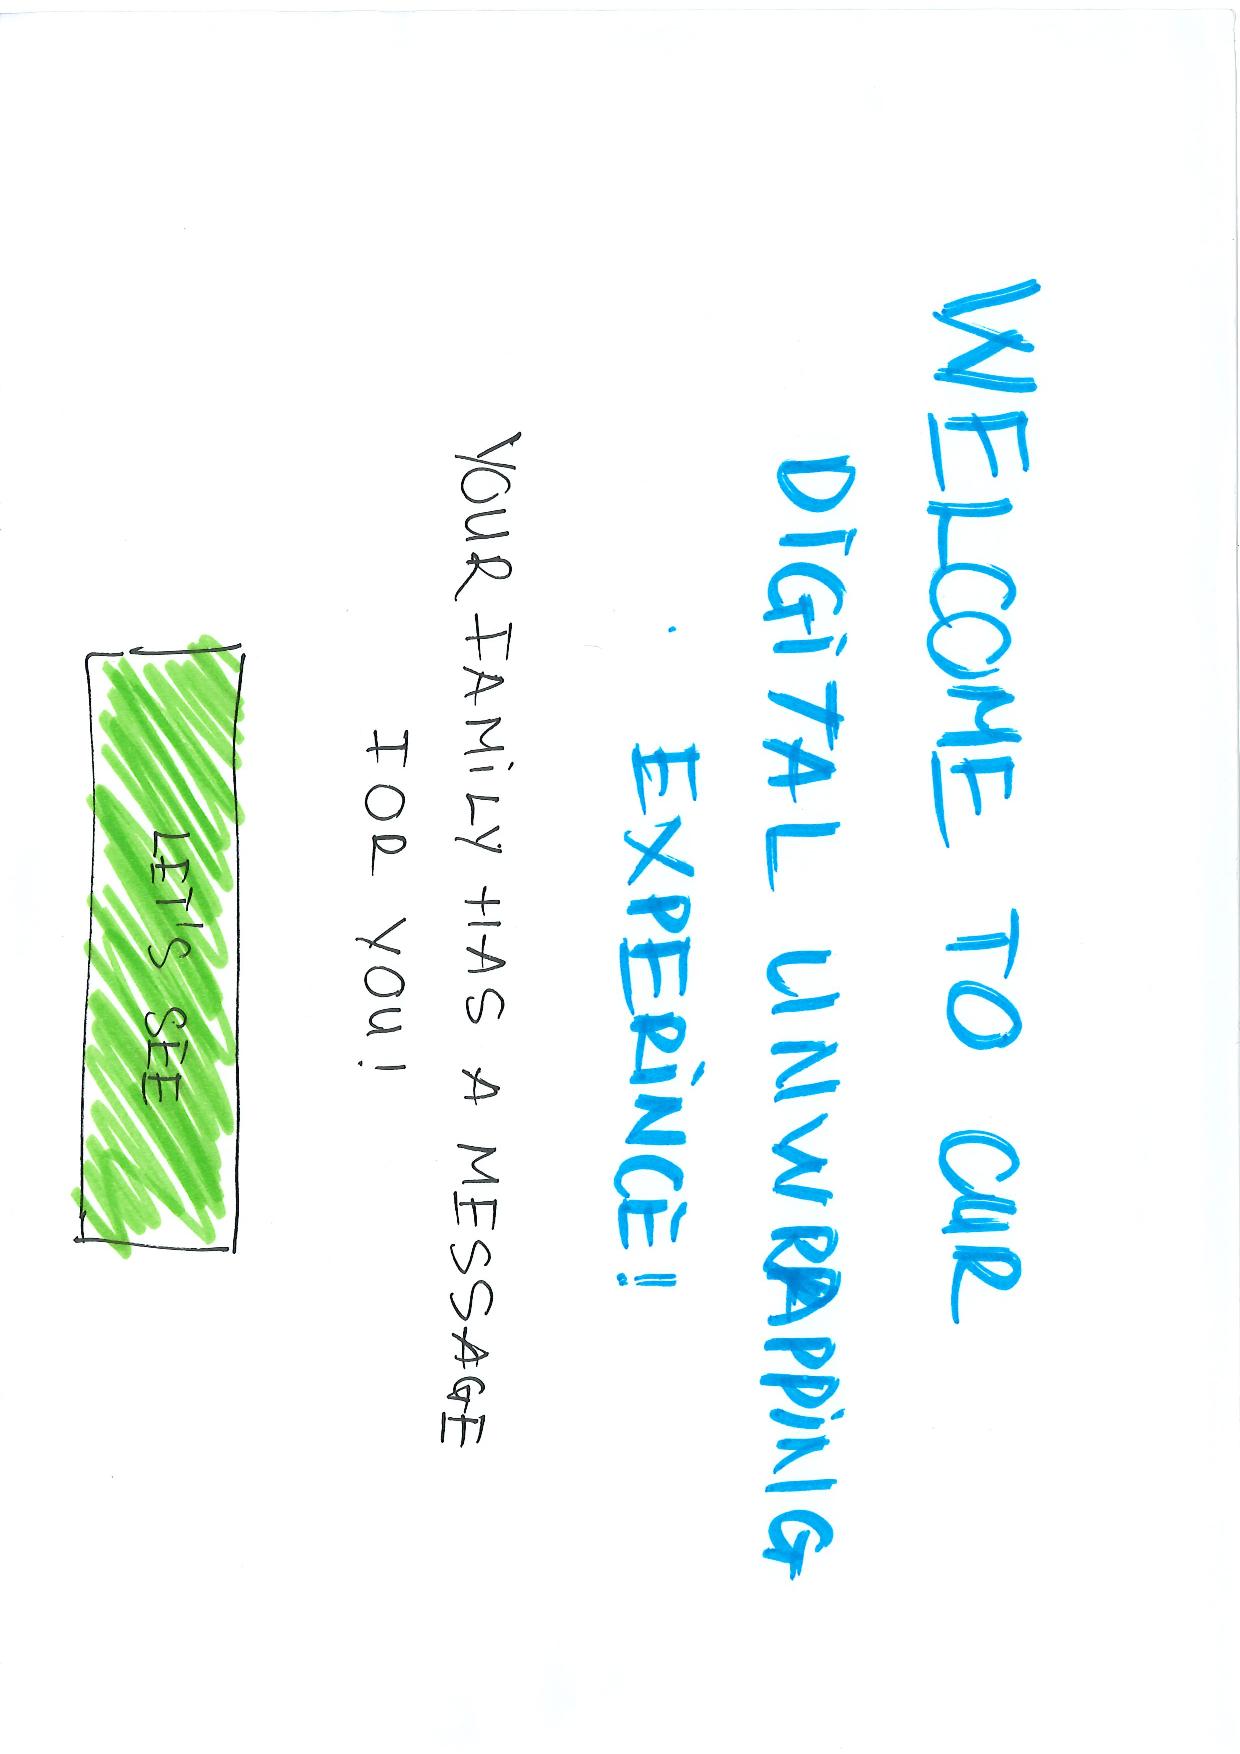 WELCOME TO OUR
DIGITAL UNWRAPPING
EXPERINCE!
YOUR FAMILY HAS A MESSAGE
FOR YOU!
LET'S SEE